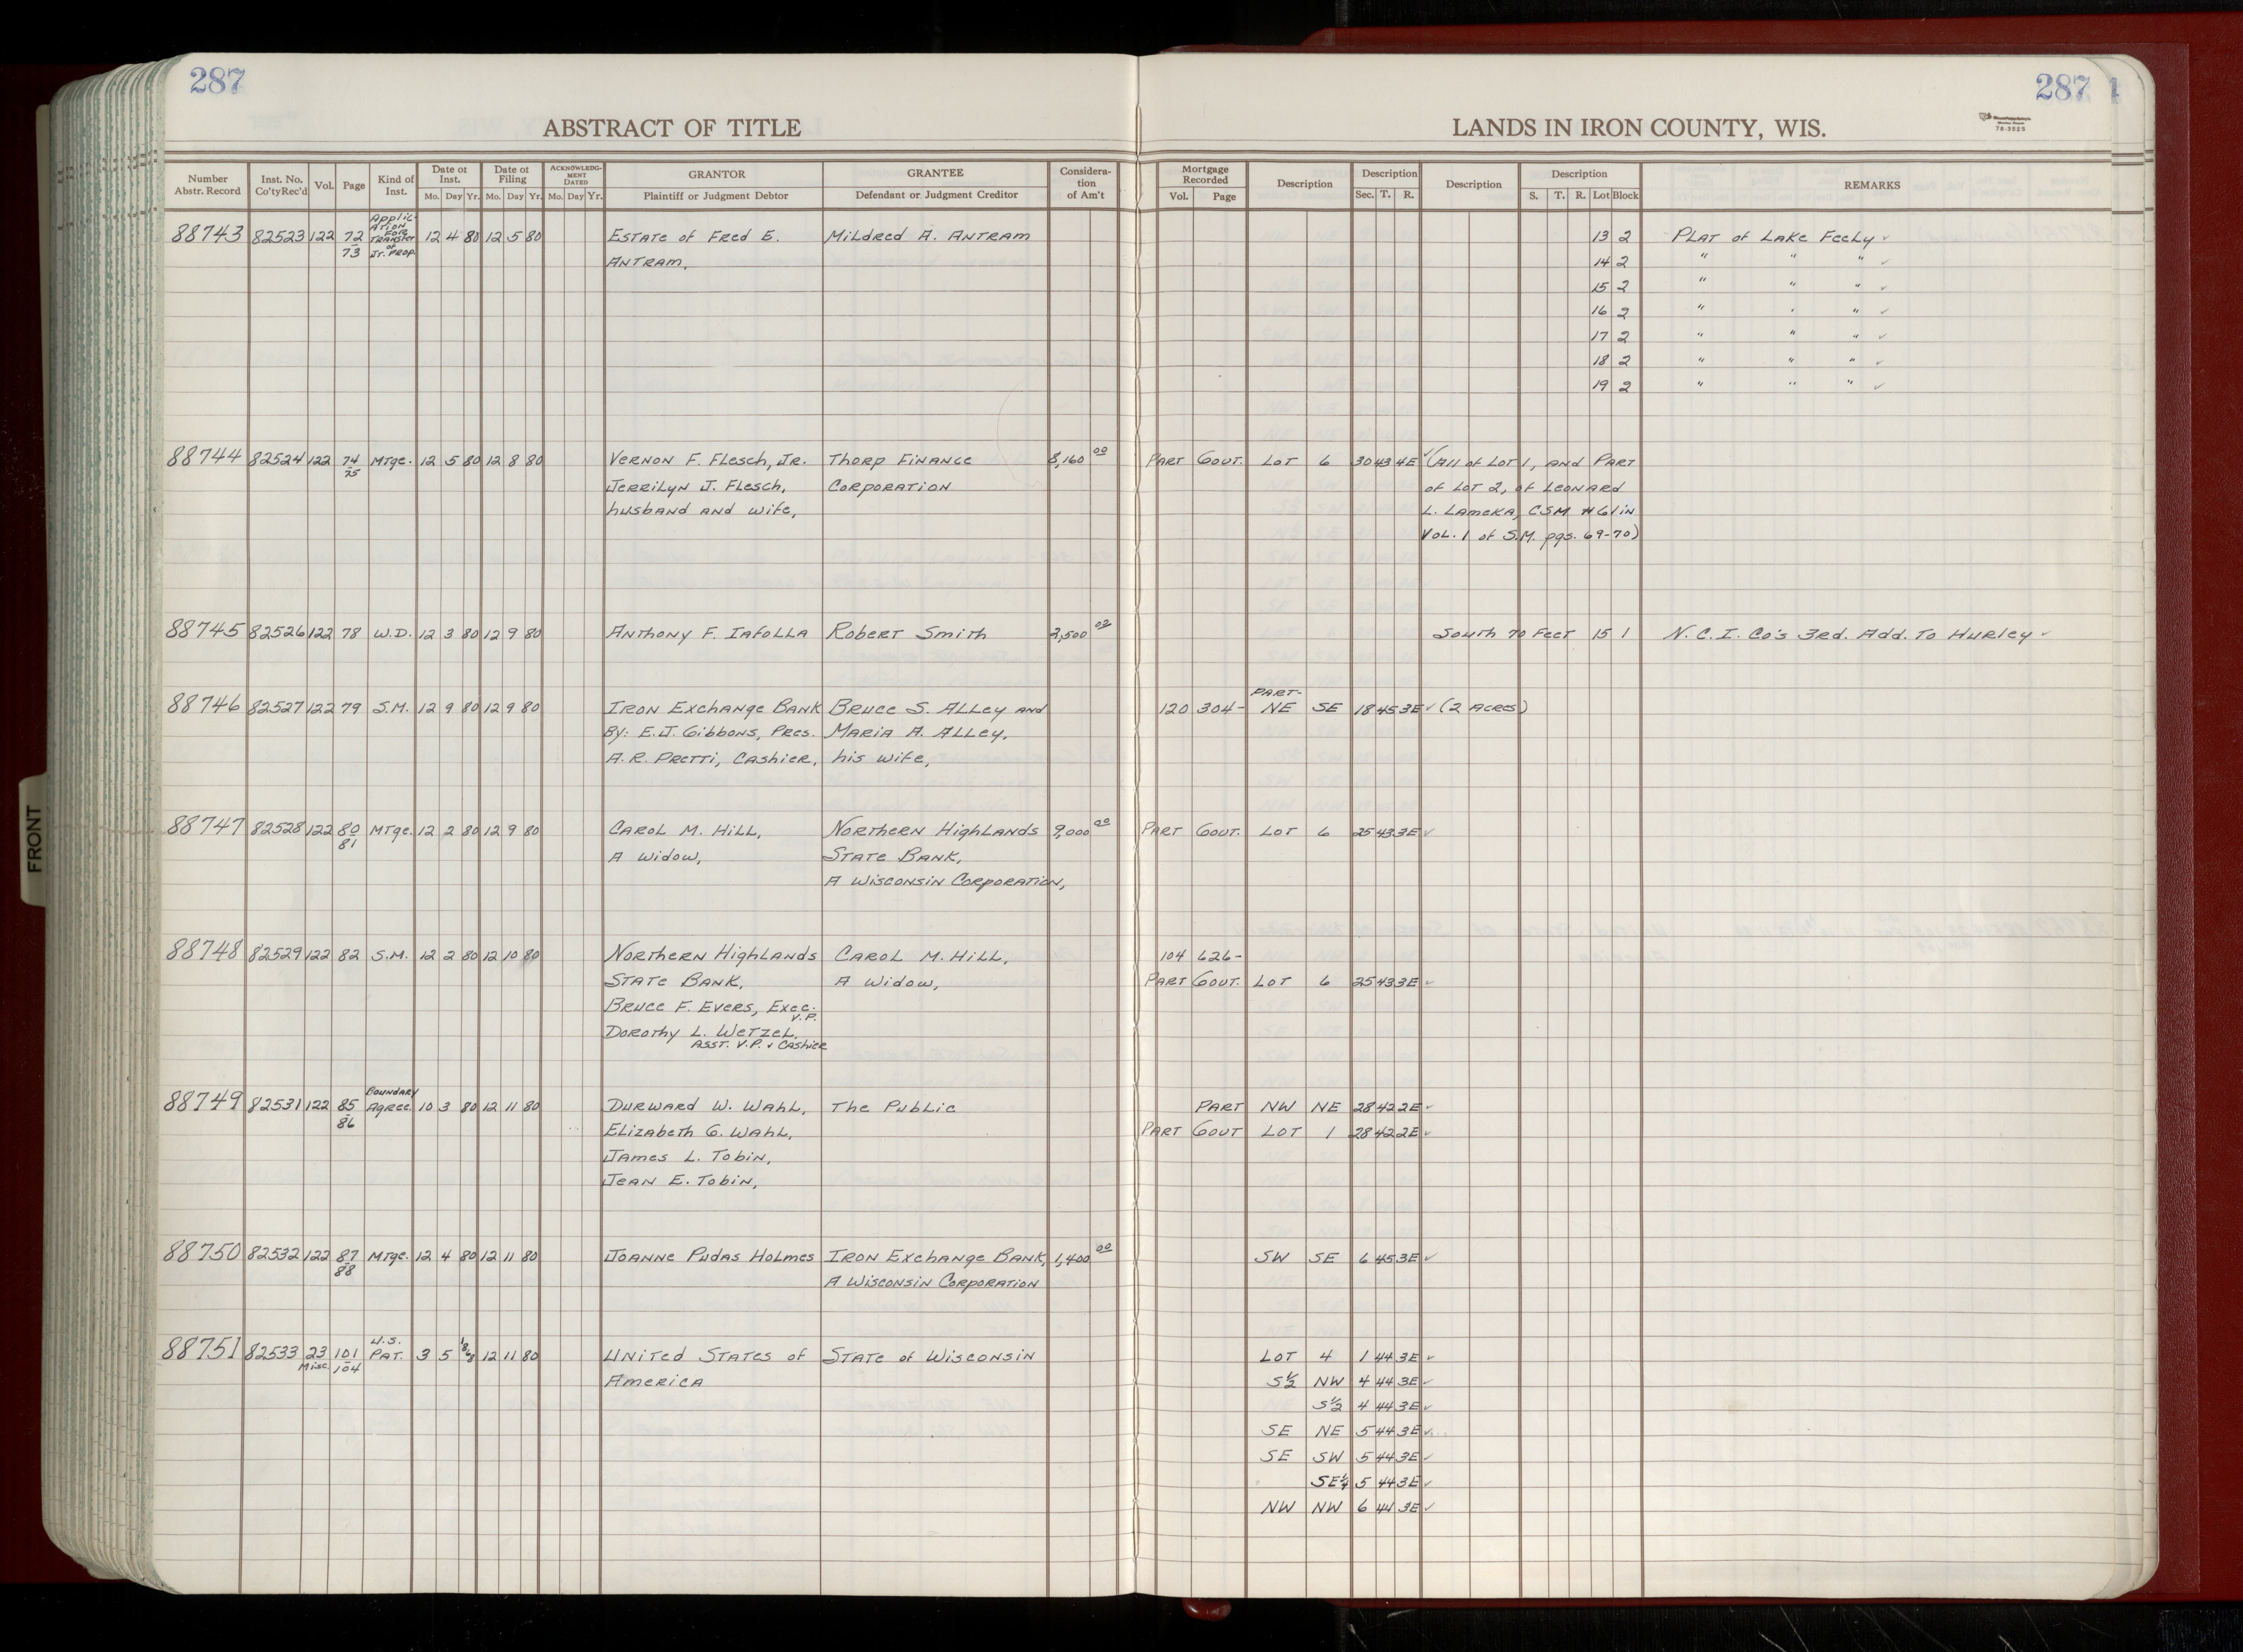 287
287
ABSTRACT OF TITLE
LANDS IN IRON COUNTY, WIS.
78-3525
Number Abstr. Record
Inst. No. Co'ty Rec'd
Vol.
Page
Kind of Inst.
Date of Inst.
Mo. Day Yr.
Date of Filing
Mo. Day Yr.
ACKNOWLEDGMENT DATED
Mo. Day Yr.
GRANTOR
Plaintiff or Judgment Debtor
GRANTEE
Defendant or Judgment Creditor
Consideration of Am't
Mortgage Recorded
Vol. Page
Description
Description
Sec. T. R.
Description
Description
S. T. R. Lot Block
REMARKS
88743 82523 122 72-73 Application For Transfer of Jt. Prop. 12 4 80 12 5 80 Estate of Fred E. Mildred A. Antram 13 2 Plat of Lake Feely ✓
Antram, 14 2 " " " ✓
15 2 " " " ✓
16 2 " " " ✓
17 2 " " " ✓
18 2 " " " ✓
19 2 " " " ✓
88744 82524 122 74-75 Mtge. 12 5 80 12 8 80 Vernon F. Flesch, Jr. Thorp Finance 8,160 00 Part Gout. Lot 6 30 43 4E ✓ (All of Lot 1, and Part
Jerrilyn J. Flesch, Corporation of Lot 2, of Leonard
husband and wife, L. Lameka, CSM #61 in
Vol. 1 of S.M. pgs. 69-70)
88745 82526 122 78 W.D. 12 3 80 12 9 80 Anthony F. Iafolla Robert Smith 2,500 00 South 70 Feet 15 1 N.C.I. Co's 3rd. Add. To Hurley ✓
Part-
88746 82527 122 79 S.M. 12 9 80 12 9 80 Iron Exchange Bank Bruce S. Alley and 120 304- NE SE 18 45 3E ✓ (2 Acres)
By: E.J. Gibbons, Pres. Maria A. Alley,
A.R. Pretti, Cashier, his wife,
88747 82528 122 80-81 Mtge. 12 2 80 12 9 80 Carol M. Hill, Northern Highlands 9,000 00 Part Gout. Lot 6 25 43 3E ✓
A Widow, State Bank,
A Wisconsin Corporation,
88748 82529 122 82 S.M. 12 2 80 12 10 80 Northern Highlands Carol M. Hill, 104 626-
State Bank, A Widow, Part Gout. Lot 6 25 43 3E ✓
Bruce F. Evers, Exec. V.P.
Dorothy L. Wetzel,
Asst. V.P. & Cashier
88749 82531 122 85-86 Boundary Agree. 10 3 80 12 11 80 Durward W. Wahl, The Public Part NW NE 28 42 2E ✓
Elizabeth G. Wahl, Part Gout Lot 1 28 42 2E ✓
James L. Tobin,
Jean E. Tobin,
88750 82532 122 87-88 Mtge. 12 4 80 12 11 80 Joanne Pudas Holmes Iron Exchange Bank, 1,400 00 SW SE 6 45 3E ✓
A Wisconsin Corporation
88751 82533 23 Misc. 101-104 U.S. Pat. 3 5 12 11 80 United States of State of Wisconsin Lot 4 1 44 3E ✓
America S½ NW 4 44 3E ✓
S½ 4 44 3E ✓
SE NE 5 44 3E ✓
SE SW 5 44 3E ✓
SE¼ 5 44 3E ✓
NW NW 6 44 3E ✓
FRONT